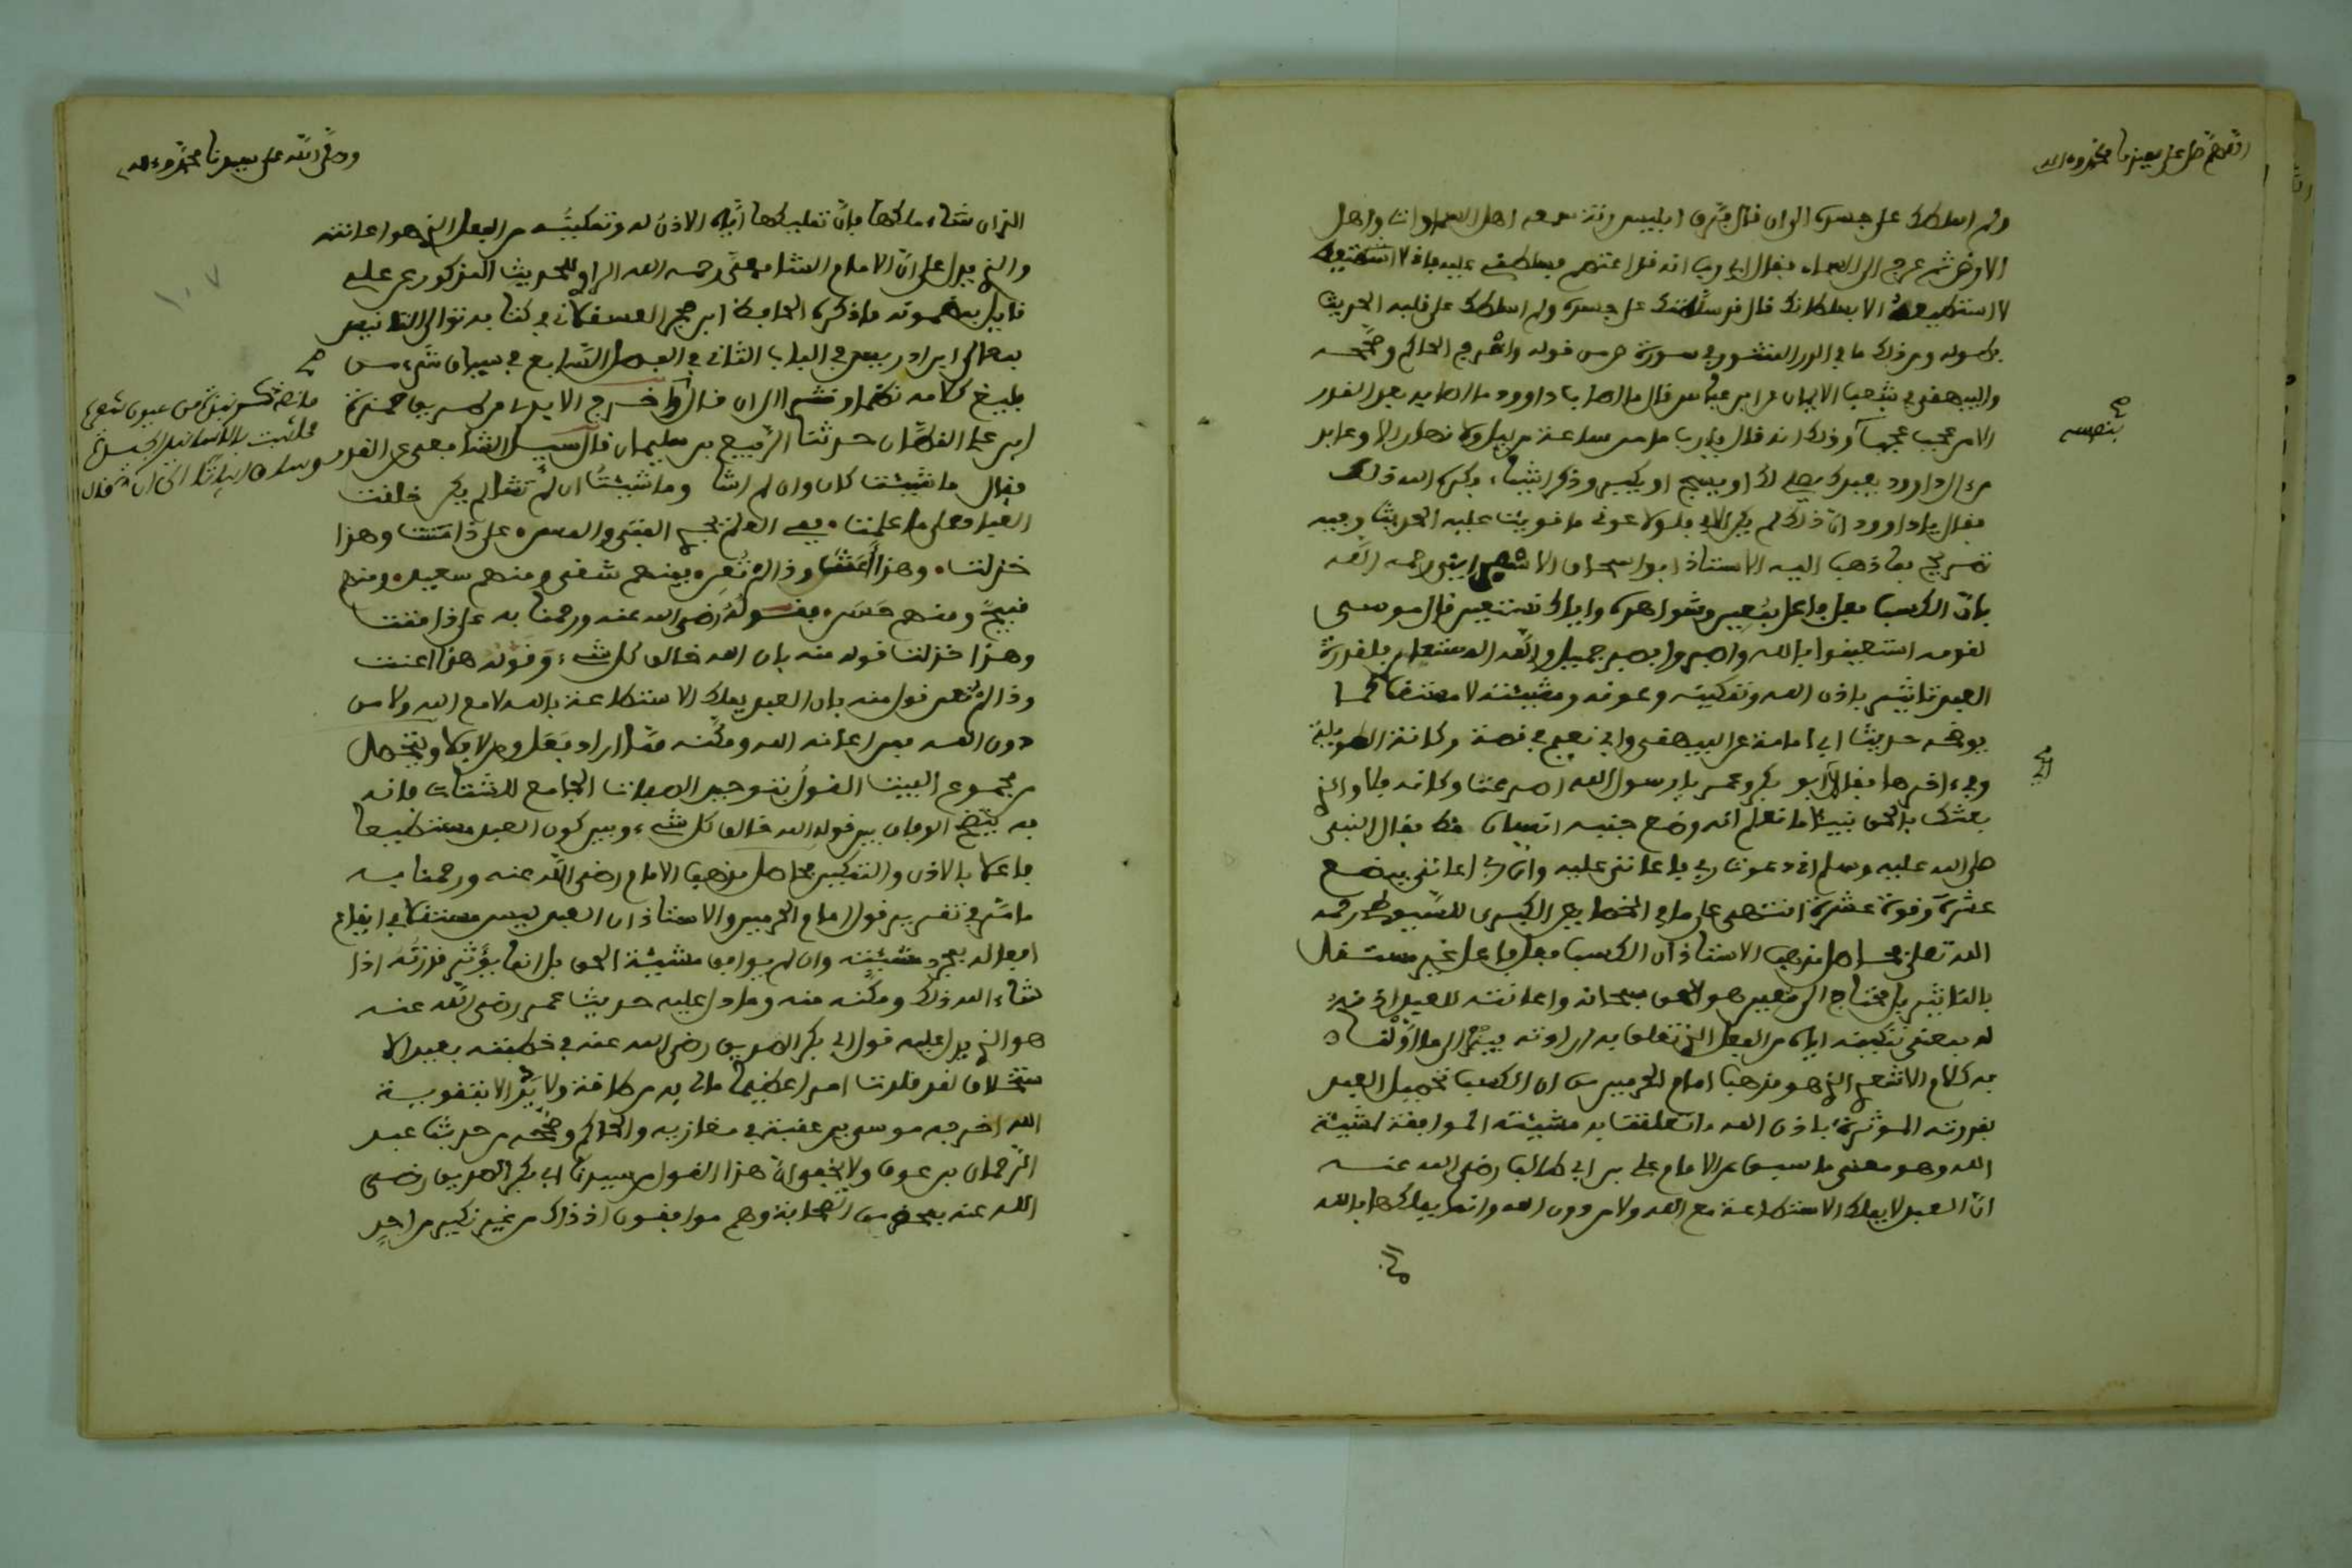 اللهم صل على سيدنا محمد وءاله
ولم اسلطك على جسده الى ان قال فرن ابليس رنة سمعه اهل السماوات واهل
الارض ثم عرج الى السماء فقال اي رب انه قد اعتصم فسلطني عليه فاني لا استطيعه
لا استطيعه الا بسلطانك قال قد سلطتك على جسده ولم اسلطك على قلبه الحديث
بطوله ومن ذلك ما في الدر المنثور في سورة ص من قوله واخرج الحاكم وصححه
والبيهقي في شعب الايمان عن ابن عباس قال ما اصاب داوود ما اصابه بعد القدر
الا من عجب عجب بنفسه وذلك انه قال يا رب ما من ساعة من ليل ولا نهار الا وعابد
من ءال داوود يعبدك يصلي لك او يسبح او يكبر وذكر اشياء فكره الله ذلك
فقال يا داوود ان ذلك لم يكن الا بي فلولا عوني ما قويت عليه الحديث وفيه
تصريح بما ذهب اليه الاستاذ ابو اسحاق الاسفرايني رحمه الله
بان الكسب فعل فاعل بمعين وشواهده واياك نستعين قال موسى
لقومه استعينوا بالله واصبروا فصبر جميل والله المستعان فلقدرة
العبد تاثير باذن الله وتمكينه وعونه ومشيئته لا مستقلا كما
يوضحه حديث ابي امامة عن البيهقي وابي نعيم في قصة ركانة الطويلة
وفي ءاخرها فقال ابو بكر وعمر يا رسول الله اصرعت ركانة فلا والذي
بعثك بالحق نبيئا ما نعلم انه وضع جنبه انسان قط فقال النبي
صلى الله عليه وسلم اني دعوت ربي فاعانني عليه وان ربي اعانني ببضع
عشرة وقوة عشرة انتهى على ما في الخصايص الكبرى للسيوطي رحمه
الله تعلى فحاصل مذهب الاستاذ ان الكسب فعل فاعل غير مستقل
بالتاثير بل محتاج الى معين هو الحق سبحانه واعانته للعبد اذنه
له بمعنى تمكينه اياه من الفعل الذي تعلق به ارادته فيئول الى ما اولنا
به كلام الاشعري الذي هو مذهب امام الحرمين من ان الكسب تحصيل العبد
بقدرته المؤثرة باذن الله ما تعلقت به مشيئته الموافقة لمشيئة
الله وهو معنى ما سبق عن الامام علي بن ابي طالب رضي الله عنه
ان العبد لا يملك الاستطاعة مع الله ولا من دون الله وانما يملكها بالله
وصلى الله على سيدنا محمد وءاله
الذي ان شاء ملكها فان تمليكها اياه الاذن له وتمكينه من الفعل الذي هو اعانته
والذي يدل على ان الامام الشافعي رحمه الله الراوي للحديث المذكور عن علي
قايل بمضمونه ما ذكره الحافظ ابن حجر العسقلاني في كتابه توالي التانيس
بمعالي ابن ادريس في الباب الثاني في الفصل السابع في بيان شيء من
بليغ كلامه نظما ونثرا الى ان قال واخرج الابدي من طريق حمزة
ابن علي القطان حدثنا الربيع بن سليمان قال سيل الشافعي عن القدر
فقال ما شيئت كان وان لم اشا وما شيئت ان لم تشا لم يكن خلقت
العباد على ما علمت ففي العلم يجري الفتى والمسن على ذا مننت وهذا
خذلت وهذا اعنت وذا لم تعن فمنهم شقي ومنهم سعيد ومنهم
قبيح ومنهم حسن فقوله رضي الله عنه ورحمنا به على ذا مننت
وهذا خذلت قول منه بان الله خالق كل شيء وقوله هذا اعنت
وذا لم تعن قول منه بان العبد يملك الاستطاعة بالله لا مع الله ولا من
دون الله فمن اعانه الله ومكنه مما اراد فعل ومن لا فلا ويتحصل
من مجموع البيت القول بتوحيد الصفات الجامع للشتات فانه
به يتضح الوفاق بين قوله الله خالق كل شيء وبين كون العبد مستطيعا
فاعلا بالاذن والتمكين فحاصل مذهب الامام رضي الله عنه ورحمنا به
ما مر في تقرير قول امام الحرمين والاستاذ ان العبد ليس مستقلا في ايقاع
افعاله بمجرد مشيئته وان لم يوافق مشيئة الحق بل انما يؤثر قدرته اذا
شاء الله ذلك ومكنه منه وما دل عليه حديث عمر رضي الله عنه
هو الذي يدل عليه قول ابي بكر الصديق رضي الله عنه في خطبته بعيد الا
ستخلاف لقد قلدت امرا عظيما ما لي به من طاقة ولا يد الا بتقوية
الله اخرجه موسى بن عقبة في مغازيه والحاكم وصححه من حديث عبد
الرحمان بن عوف ولا يخفى ان هذا القول من سيدنا ابي بكر الصديق رضي
الله عنه بمحضر من الصحابة وهم موافقون اذ ذاك من غير نكير من احد